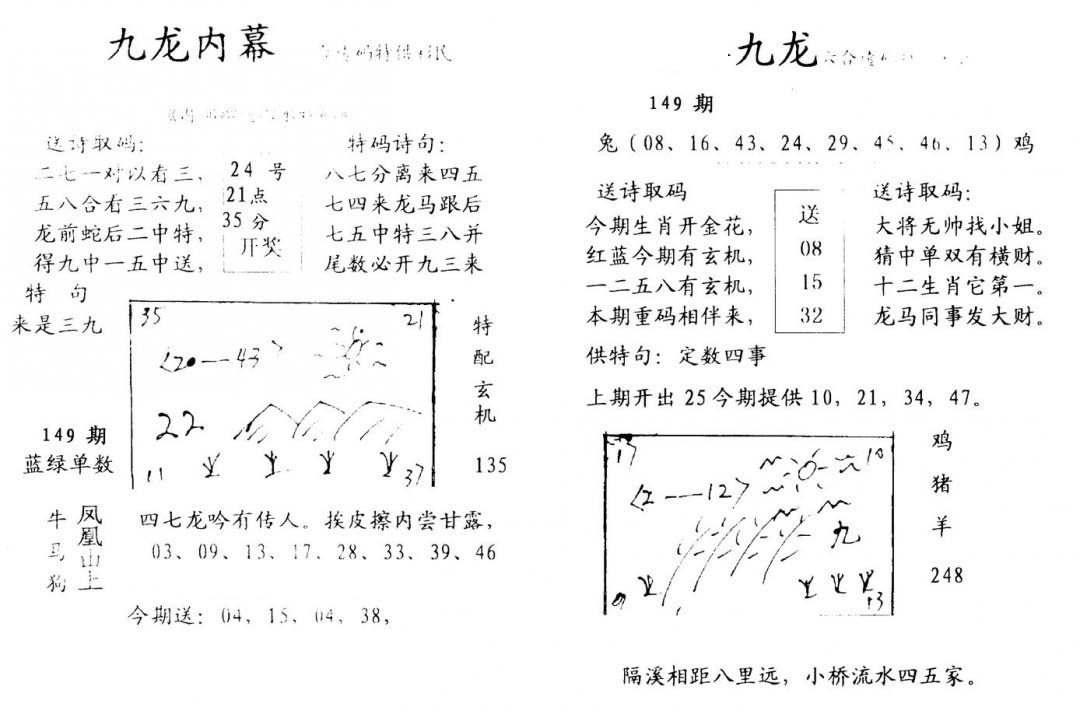 九龙内幕
送诗取码:
二七一对以看三,
五八合看三六九,
龙前蛇后二中特,
得九中一五中送,
24 号
21点
35 分
开奖
特码诗句:
八七分离来四五
七四来龙马跟后
七五中特三八并
尾数必开九三来
特 句
来是三九
35
21
〈20—43〉
22
11
37
特
配
玄
机
135
149 期
蓝绿单数
牛
马
狗
凤
凰
山
上
四七龙吟有传人。挨皮擦内尝甘露,
03、09、13、17、28、33、39、46
今期送: 04, 15, 04, 38,
九龙
149 期
兔（08、16、43、24、29、45、46、13）鸡
送诗取码
今期生肖开金花,
红蓝今期有玄机,
一二五八有玄机,
本期重码相伴来,
送
08
15
32
送诗取码:
大将无帅找小姐。
猜中单双有横财。
十二生肖它第一。
龙马同事发大财。
供特句: 定数四事
上期开出 25 今期提供 10, 21, 34, 47。
17
10
〈2—12〉
九
鸡
猪
羊
248
隔溪相距八里远, 小桥流水四五家。